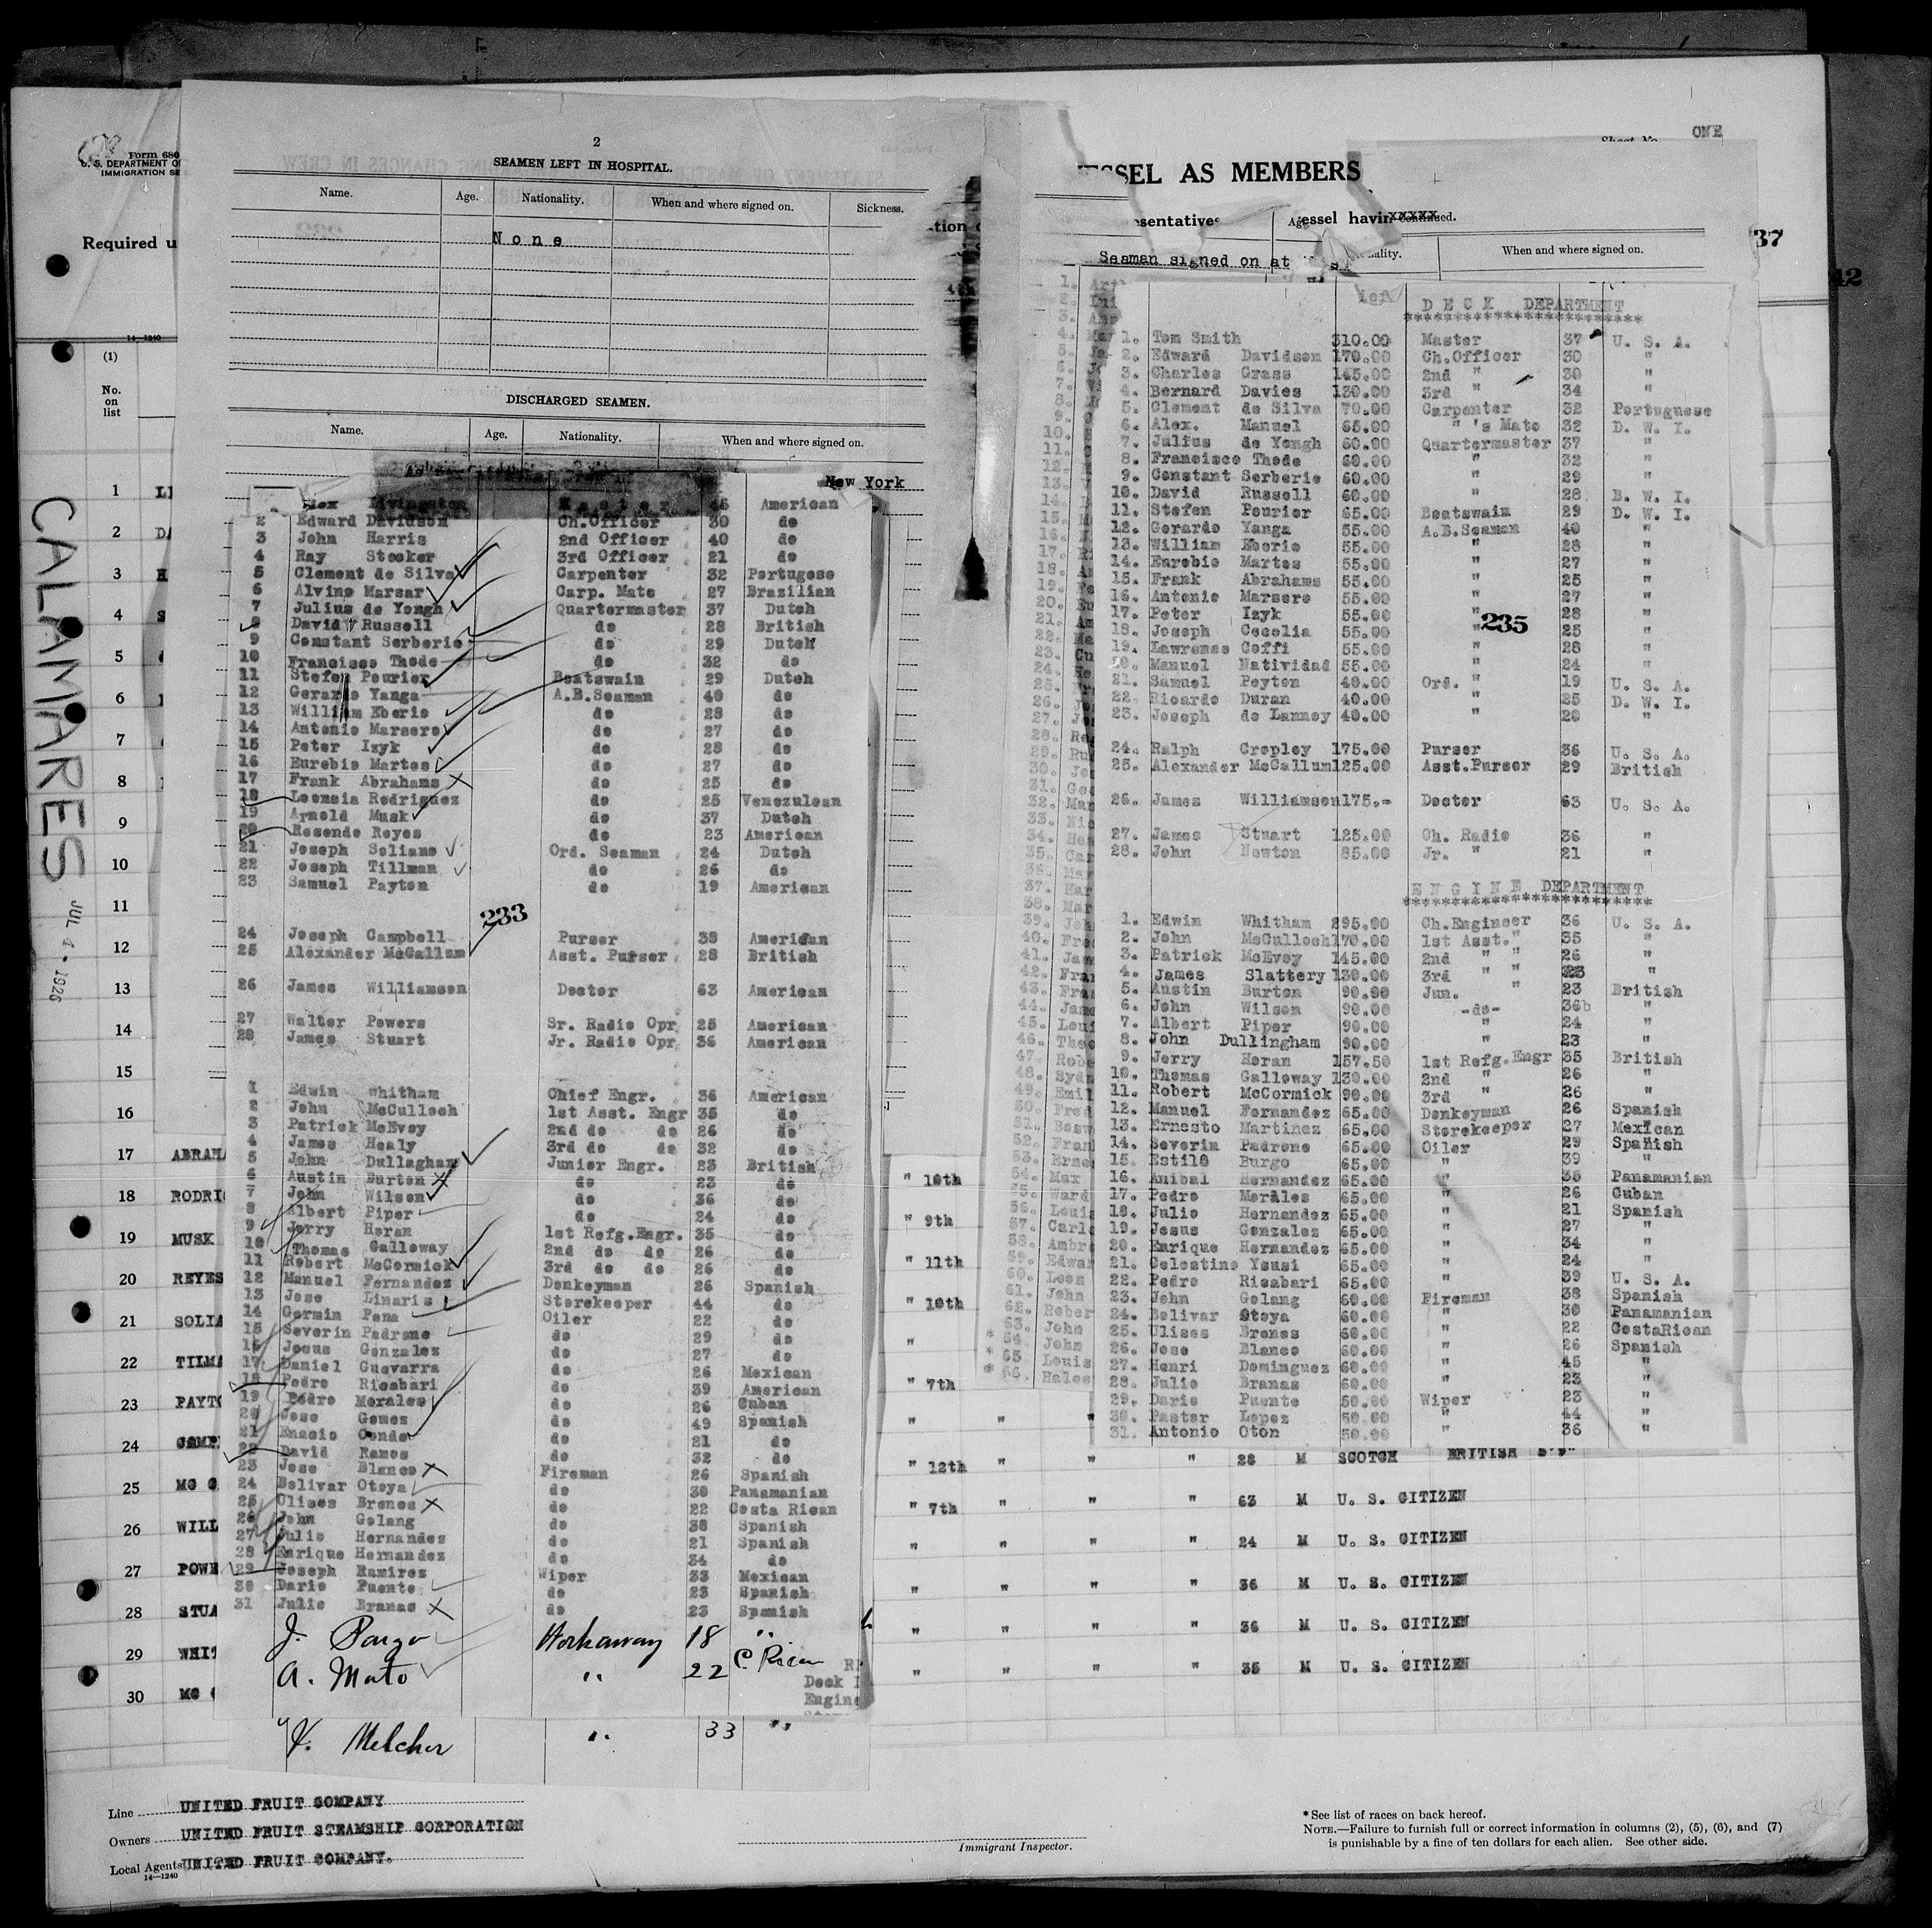 ONE
2
SEAMEN LEFT IN HOSPITAL.
Form 680
U. S. DEPARTMENT O
IMMIGRATION SE
Required u
Name. Age. Nationality. When and where signed on. Sickness.
None
DISCHARGED SEAMEN.
Name. Age. Nationality. When and where signed on.
New York
Livingston Master 45 American
2 Edward Davidson Ch.Officer 30 do
3 John Harris 2nd Officer 40 do
4 Ray Stocker 3rd Officer 21 do
5 Clement de Silva Carpenter 32 Portugese
6 Alvine Marsar Carp. Mate 27 Brazilian
7 Julius de Yongh Quartermaster 37 Dutch
8 David Russell do 28 British
9 Constant Serberie do 29 Dutch
10 Francisco Thode do 32 do
11 Stefen Pourier Boatswain 29 Dutch
12 Gerardo Yanga A.B.Seaman 40 do
13 William Eberie do 28 do
14 Antonio Marsere do 27 do
15 Peter Izyk do 28 do
16 Eurebio Martes do 27 do
17 Frank Abrahams do 25 do
18 Leoncia Rodriguez do 25 Venezulean
19 Arnold Musk do 37 Dutch
20 Resende Reyes do 23 American
21 Joseph Soliano Ord. Seaman 24 Dutch
22 Joseph Tillman do 26 do
23 Samuel Payton do 19 American
233
24 Joseph Campbell Purser 38 American
25 Alexander McCallum Asst. Purser 28 British
26 James Williamson Doctor 63 American
27 Walter Powers Sr. Radio Opr 25 American
28 James Stuart Jr. Radio Opr 36 American
1 Edwin Whitham Chief Engr. 36 American
2 John McCulloch 1st Asst. Engr 35 do
3 Patrick McEvoy 2nd do do 26 do
4 James Healy 3rd do do 32 do
5 John Dullagham Junior Engr. 23 British
6 Austin Burton do 23 do
7 John Wilson do 36 do
8 Albert Piper do 24 do
9 Jerry Horan 1st Refg.Engr. 35 do
10 Thomas Galloway 2nd do do 26 do
11 Robert McCormick 3rd do do 26 do
12 Manuel Fernandez Donkeyman 26 Spanish
13 Jose Linaris Storekeeper 44 do
14 Germin Pena Oiler 22 do
15 Severin Padrone do 29 do
16 Jesus Gonzales do 27 do
17 Daniel Guevarra do 26 Mexican
18 Pedro Ricabari do 39 American
19 Pedro Morales do 26 Cuban
20 Jose Gomez do 49 Spanish
21 Enacio Conde do 21 do
22 David Ramos do 32 do
23 Jose Blanco Fireman 26 Spanish
24 Bolivar Otoya do 30 Panamanian
25 Ulises Brenes do 22 Costa Rican
26 John Golang do 38 Spanish
27 Julio Hernandez do 21 Spanish
28 Enrique Hernandez do 34 do
29 Joseph Ramirez Wiper 33 Mexican
30 Dario Puente do 23 Spanish
31 Julio Branas do 23 Spanish
J. Parga Workaway 18 "
A. Mato " 22 C. Rican
Deck
Engine
Melcher " 33 "
SSEL AS MEMBERS
esentative
essel havin
xxxxx
37
42
When and where signed on.
Seaman signed on at
DECK DEPARTMENT
1. Tom Smith 310.00 Master 37 U. S. A.
2. Edward Davidson 170.00 Ch.Officer 30 "
3. Charles Grass 145.00 2nd " 30 "
4. Bernard Davies 130.00 3rd " 34 "
5. Clement de Silva 70.00 Carpenter 32 Portuguese
6. Alex. Manuel 65.00 " 's Mate 32 D. W. I.
7. Julius de Yongh 60.00 Quartermaster 37 "
8. Francisco Thode 60.00 " 32 "
9. Constant Serberie 60.00 " 29 "
10. David Russell 60.00 " 28 B. W. I.
11. Stefen Pourier 65.00 Boatswain 29 D. W. I.
12. Gerardo Yanga 55.00 A.B.Seaman 40 "
13. William Eberie 55.00 " 28 "
14. Eurebio Martes 55.00 " 27 "
15. Frank Abrahams 55.00 " 25 "
16. Antonio Marsere 55.00 " 27 "
17. Peter Izyk 55.00 " 28 "
235
18. Joseph Cecelia 55.00 " 25 "
19. Lawrence Coffi 55.00 " 28 "
20. Manuel Natividad 55.00 " 24 "
21. Samuel Peyton 40.00 Ord. " 19 U. S. A.
22. Ricardo Duran 40.00 " 25 D. W. I.
23. Joseph de Lanney 40.00 " 20 "
24. Ralph Cropley 175.00 Purser 36 U. S. A.
25. Alexander McCallum 125.00 Asst.Purser 29 British
26. James Williamson 175.- Doctor 63 U. S. A.
27. James Stuart 125.00 Ch. Radio 36 "
28. John Newton 85.00 Jr. " 21 "
ENGINE DEPARTMENT
1. Edwin Whitham 295.00 Ch.Engineer 36 U. S. A.
2. John McCulloch 170.00 1st Asst." 35 "
3. Patrick McEvoy 145.00 2nd " " 26 "
4. James Slattery 130.00 3rd " " 23 "
5. Austin Burton 90.00 Jun. " 23 British
6. John Wilson 90.00 -do- 36 "
7. Albert Piper 90.00 " 24 "
8. John Dullingham 90.00 " 23 "
9. Jerry Horan 157.50 1st Refg.Engr 35 British
10. Thomas Galloway 130.00 2nd " 26 "
11. Robert McCormick 90.00 3rd " 26 "
12. Manuel Fernandez 65.00 Donkeyman 26 Spanish
13. Ernesto Martinez 65.00 Storekeeper 27 Mexican
14. Severin Padrone 65.00 Oiler 29 Spanish
15. Estilo Burgo 65.00 " 39 "
16. Anibal Hernandez 65.00 " 35 Panamanian
17. Pedro Morales 65.00 " 26 Cuban
18. Julio Hernandez 65.00 " 21 Spanish
19. Jesus Gonzalez 65.00 " 27 "
20. Enrique Hernandez 65.00 " 34 "
21. Celestino Ysusi 65.00 " 24 "
22. Pedro Ricabari 65.00 " 39 U. S. A.
23. John Golang 60.00 Fireman 38 Spanish
24. Bolivar Otoya 60.00 " 30 Panamanian
25. Ulises Brenes 60.00 " 22 CostaRican
26. Jose Blanco 60.00 " 26 Spanish
27. Henri Dominguez 60.00 " 45 "
28. Julio Branas 60.00 " 23 "
29. Dario Puente 50.00 Wiper 23 "
30. Pastor Lopez 50.00 " 44 "
31. Antonio Oton 50.00 " 36 "
CALAMARES
JUL 4 - 1925
(1)
No. on list
1
2
3
4
5
6
7
8
9
10
11
12
13
14
15
16
17 ABRAHA
18 RODRIG " 10th
19 MUSK " 9th
20 REYES " 11th
21 SOLIA " 10th
22 TILMA "
23 PAYTO " 7th
24 CAMP " " "
25 MC C " 12th " " " 28 M SCOTCH BRITISH
26 WILL " 7th " " " 63 M U. S. CITIZEN
27 POWE " " " " 24 M U. S. CITIZEN
28 STUA " " " " 36 M U. S. CITIZEN
29 WHIT " " " " 36 M U. S. CITIZEN
30 MC " " " " 35 M U. S. CITIZEN
Line UNITED FRUIT COMPANY
Owners UNITED FRUIT STEAMSHIP CORPORATION
Local Agents UNITED FRUIT COMPANY.
14—1240
Immigrant Inspector.
*See list of races on back hereof.
NOTE.—Failure to furnish full or correct information in columns (2), (5), (6), and (7)
is punishable by a fine of ten dollars for each alien. See other side.